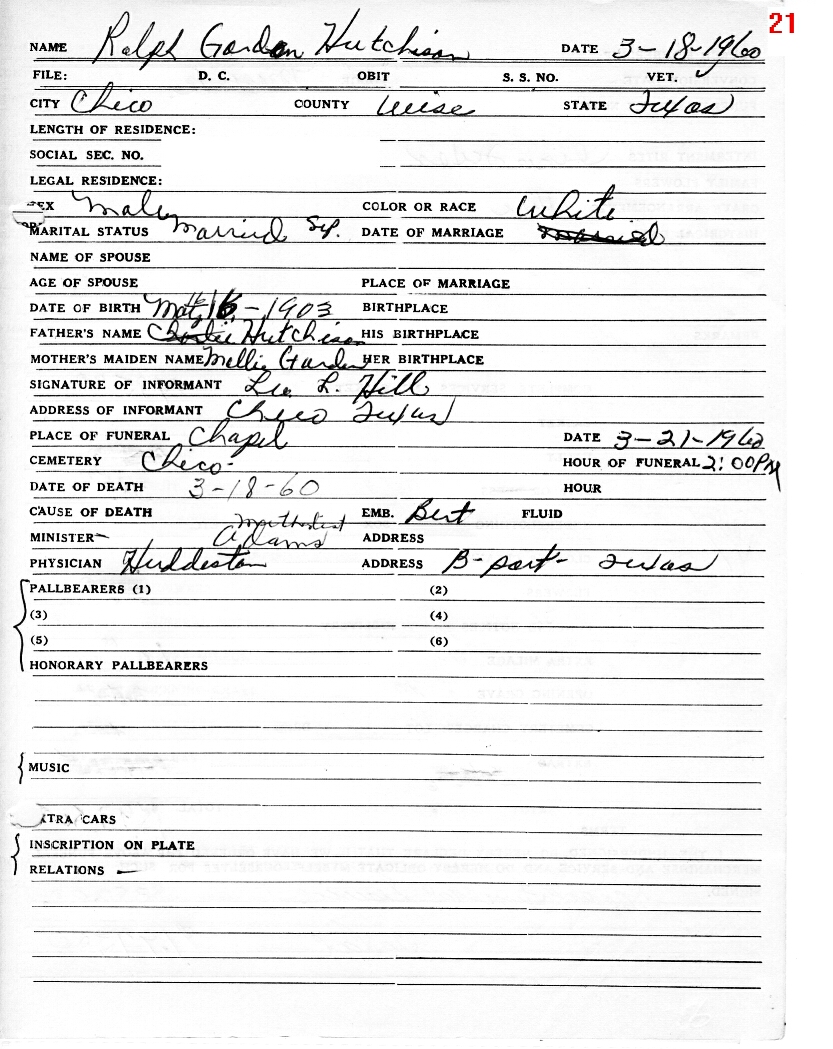 21
NAME Ralph Gordon Hutchison DATE 3-18-1960
FILE: D. C. OBIT S. S. NO. VET. ✓
CITY Chico COUNTY Wise STATE Texas
LENGTH OF RESIDENCE:
SOCIAL SEC. NO.
LEGAL RESIDENCE:
SEX Male COLOR OR RACE White
MARITAL STATUS Married Sep. DATE OF MARRIAGE
NAME OF SPOUSE
AGE OF SPOUSE PLACE OF MARRIAGE
DATE OF BIRTH 16-1903 BIRTHPLACE
FATHER'S NAME Charlie Hutchison HIS BIRTHPLACE
MOTHER'S MAIDEN NAME Mellie Garden HER BIRTHPLACE
SIGNATURE OF INFORMANT L. Hill
ADDRESS OF INFORMANT Chico Texas
PLACE OF FUNERAL Chapel DATE 3-21-1960
CEMETERY Chico- HOUR OF FUNERAL 2:00PM
DATE OF DEATH 3-18-60 HOUR
CAUSE OF DEATH EMB. Bert FLUID
Methodist
MINISTER- Adams ADDRESS
PHYSICIAN Huddleston ADDRESS B-port- Texas
PALLBEARERS (1) (2)
(3) (4)
(5) (6)
HONORARY PALLBEARERS
MUSIC
XTRA CARS
INSCRIPTION ON PLATE
RELATIONS -